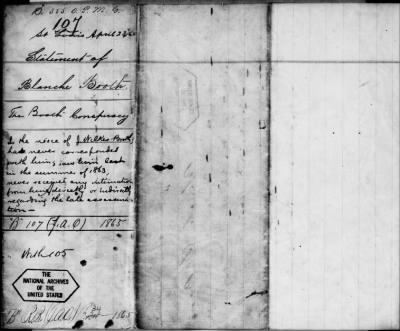 B. 555. J.A.O.
107
St Louis April 23/65
Statement of
Blanche Booth.
The Booth Conspiracy
Is the niece of J. Wilkes Booth,
has never corresponded
with him, saw him last
in the summer of 1863,
never received any intimation
from him directly or indirectly
regarding the late assassina-
tion—
"B" 107 (J.A.O) 1865
With 105
THE
NATIONAL ARCHIVES
OF THE
UNITED STATES
1865